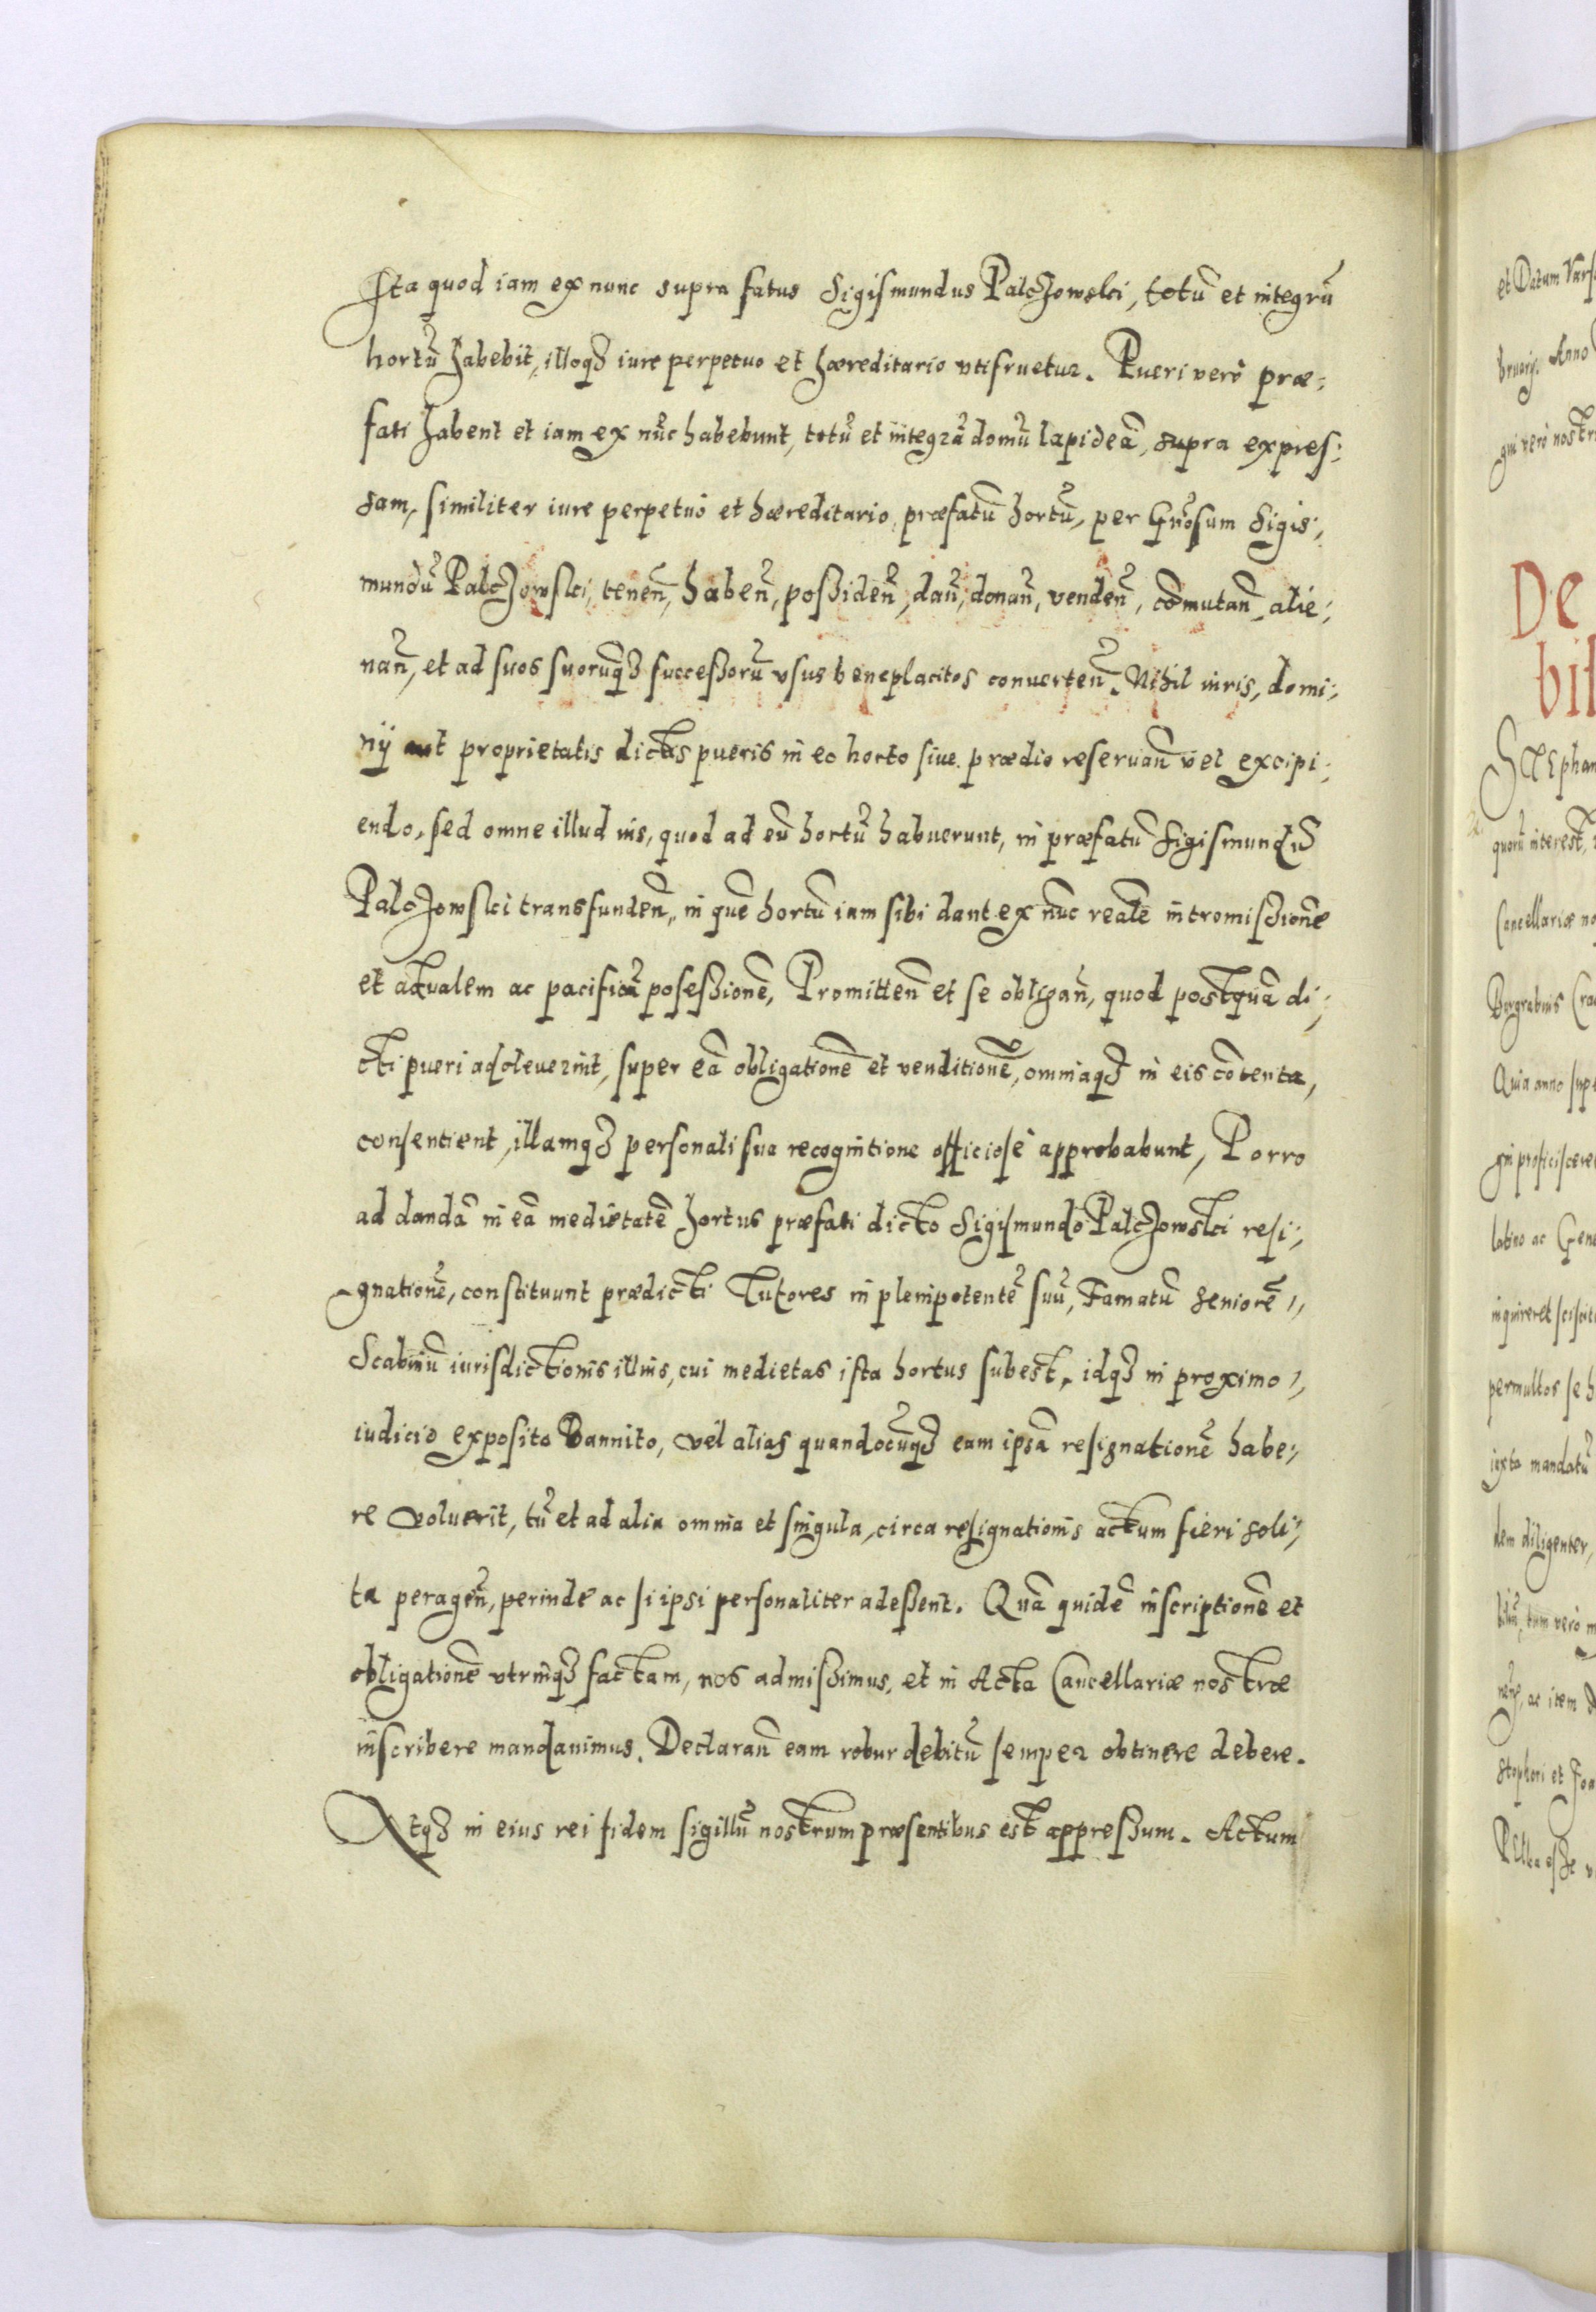 Ita quod iam ex nunc supra fatus Sigismundus Palczowski, totū et integrū
hortū habebit, illoqꝫ iure perpetuo et hæreditario vtifruetur. Pueri verò præ:
fati habent et iam ex nūc habebunt, totū et integrā domū lapideā, supra expres:
sam, similiter iure perpetuò et hæreditario, præfatū hortū, per Gn̄osum Sigis:
mundū Palczowski, tenen̄, haben̄, poßiden̄, dan̄, donan̄, venden̄, cōmutan̄, alie:
nan̄, et ad suos suorūqꝫ succeßorū vsus beneplacitos conuerten̄. Nihil iuris, domi:
nij aut proprietatis dictis pueris in eo horto siue prædio reseruan̄ vel excipi:
endo, sed omne illud ius, quod ad eū hortū habuerunt, in præfatū Sigismundū
Palczowski transfunden̄, in quē hortū iam sibi dant ex nūc realē intromißionē
et actualem ac pacificā poseßionē, Promitten̄ et se obligan̄, quod postquā di:
cti pueri adoleuerint, super eā obligationē et venditionē, omniaqꝫ in eis cōtenta,
consentient, illamqꝫ personali sua recognitione officiosè approbabunt, Porro
ad dandā in eā medietatē hortus præfati dicto Sigismundo Palczowski resi:
gnationē, constituunt prædicti Tutores in plenipotentē suū, Famatū seniorē
Scabinū iurisdictionis illius, cui medietas ista hortus subest, idqꝫ in proximo
iudicio exposito Bannito, vel alias quandocūqꝫ eam ipsā resignationē habe:
re voluerit, tū et ad alia omnia et singula, circa resignationis actum fieri soli:
ta peragen̄, perinde ac si ipsi personaliter adeßent. Quā quidē inscriptionē et
obligationē vtrinqꝫ factam, nos admißimus, et in Acta Cancellariæ nostræ
inscribere mandauimus. Declaran̄ eam robur debitū semper obtinere debere.
Atqꝫ in eius rei fidem sigillū nostrum præsentibus est appreßum. Actum
et Datum
Anno
De
bil
Cancellariæ
Quia anno
iuxta mandatū
dem diligenter,